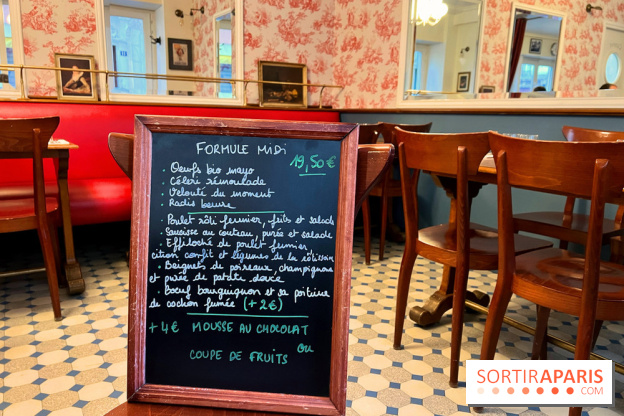 FORMULE MIDI
19,50€
. Oeufs bio mayo
. Céleri rémoulade
. Velouté du moment
. Radis beurre
. Poulet rôti fermier, frites et salade
. Saucisse au couteau, purée et salade
. Effiloché de poulet fermier
citron confit et légumes de la rôtisserie
. Beignets de poireaux, champignons
et purée de patate douce
. Boeuf bourguignon et sa poitrine
de cochon fumée (+2€)
+4€ MOUSSE AU CHOCOLAT
OU
COUPE DE FRUITS
SORTIRAPARIS
.COM